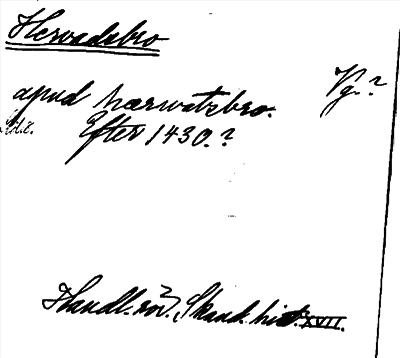 Hervadsbro
Vg.?
apud hærwatzbro.
Efter 1430.?
Handl. rör. Skand. hist. XVII.